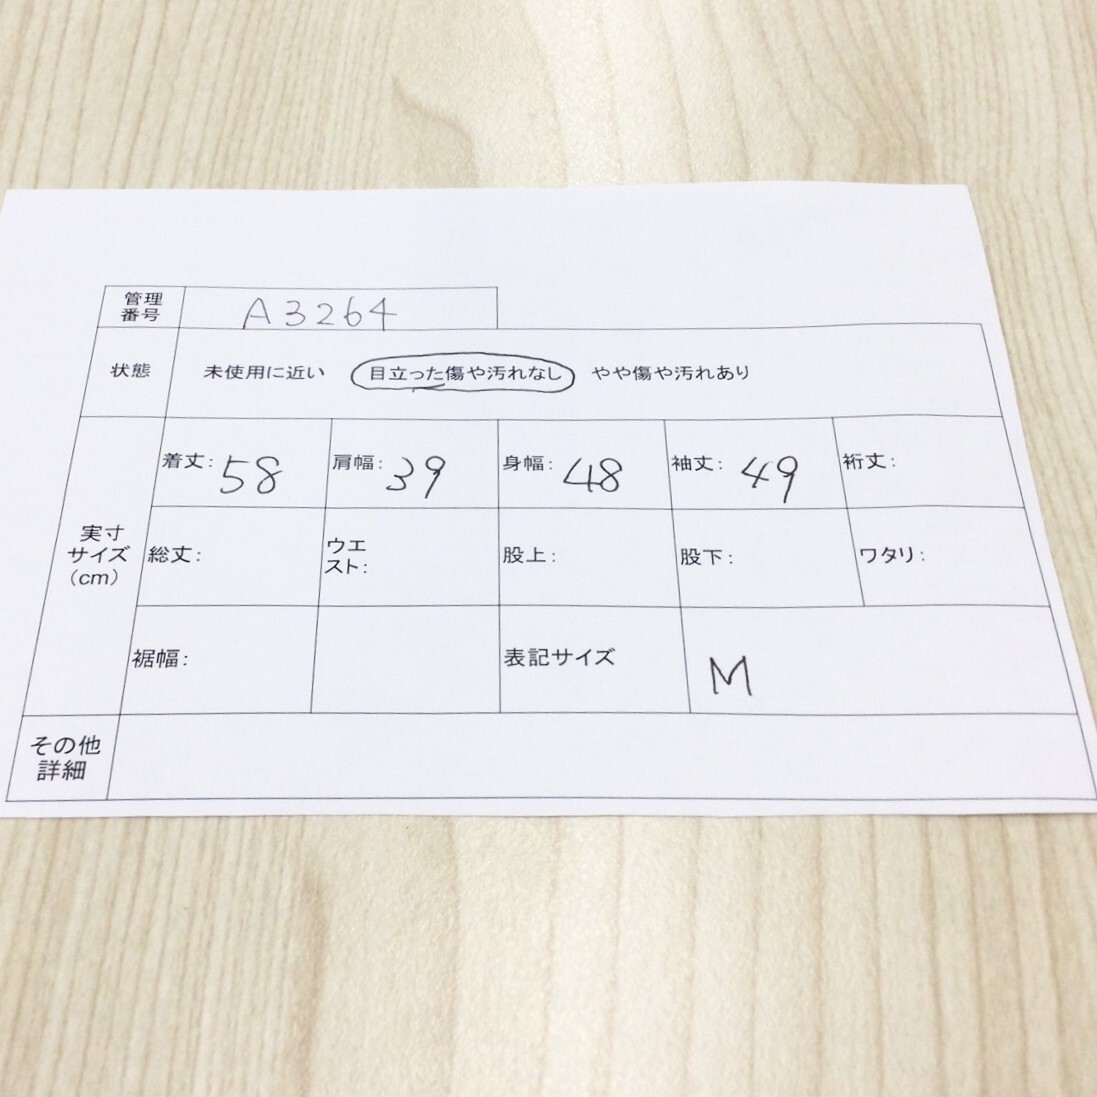 管理
番号
A3264
状態
未使用に近い 目立った傷や汚れなし やや傷や汚れあり
実寸
サイズ
(cm)
着丈: 58
肩幅: 39
身幅: 48
袖丈: 49
裄丈:
総丈:
ウエ
スト:
股上:
股下:
ワタリ:
裾幅:
表記サイズ
M
その他
詳細